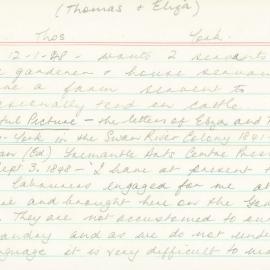 (Thomas & Eliza)
Thos York.
12-1-28 - wants 2 servants
gardener & house servant
a farm servant to
occasionally tend on cattle
ful Picture - the letters of Eliza and T
York in the Swan River Colony 1841-
(Ed) Fremantle Arts Centre Press
Sept 3. 1848 - 'I have at present t
labourers engaged for me at
and brought here on the
They are not accustomed to our
and as we do not under
nguage it is very difficult to ma